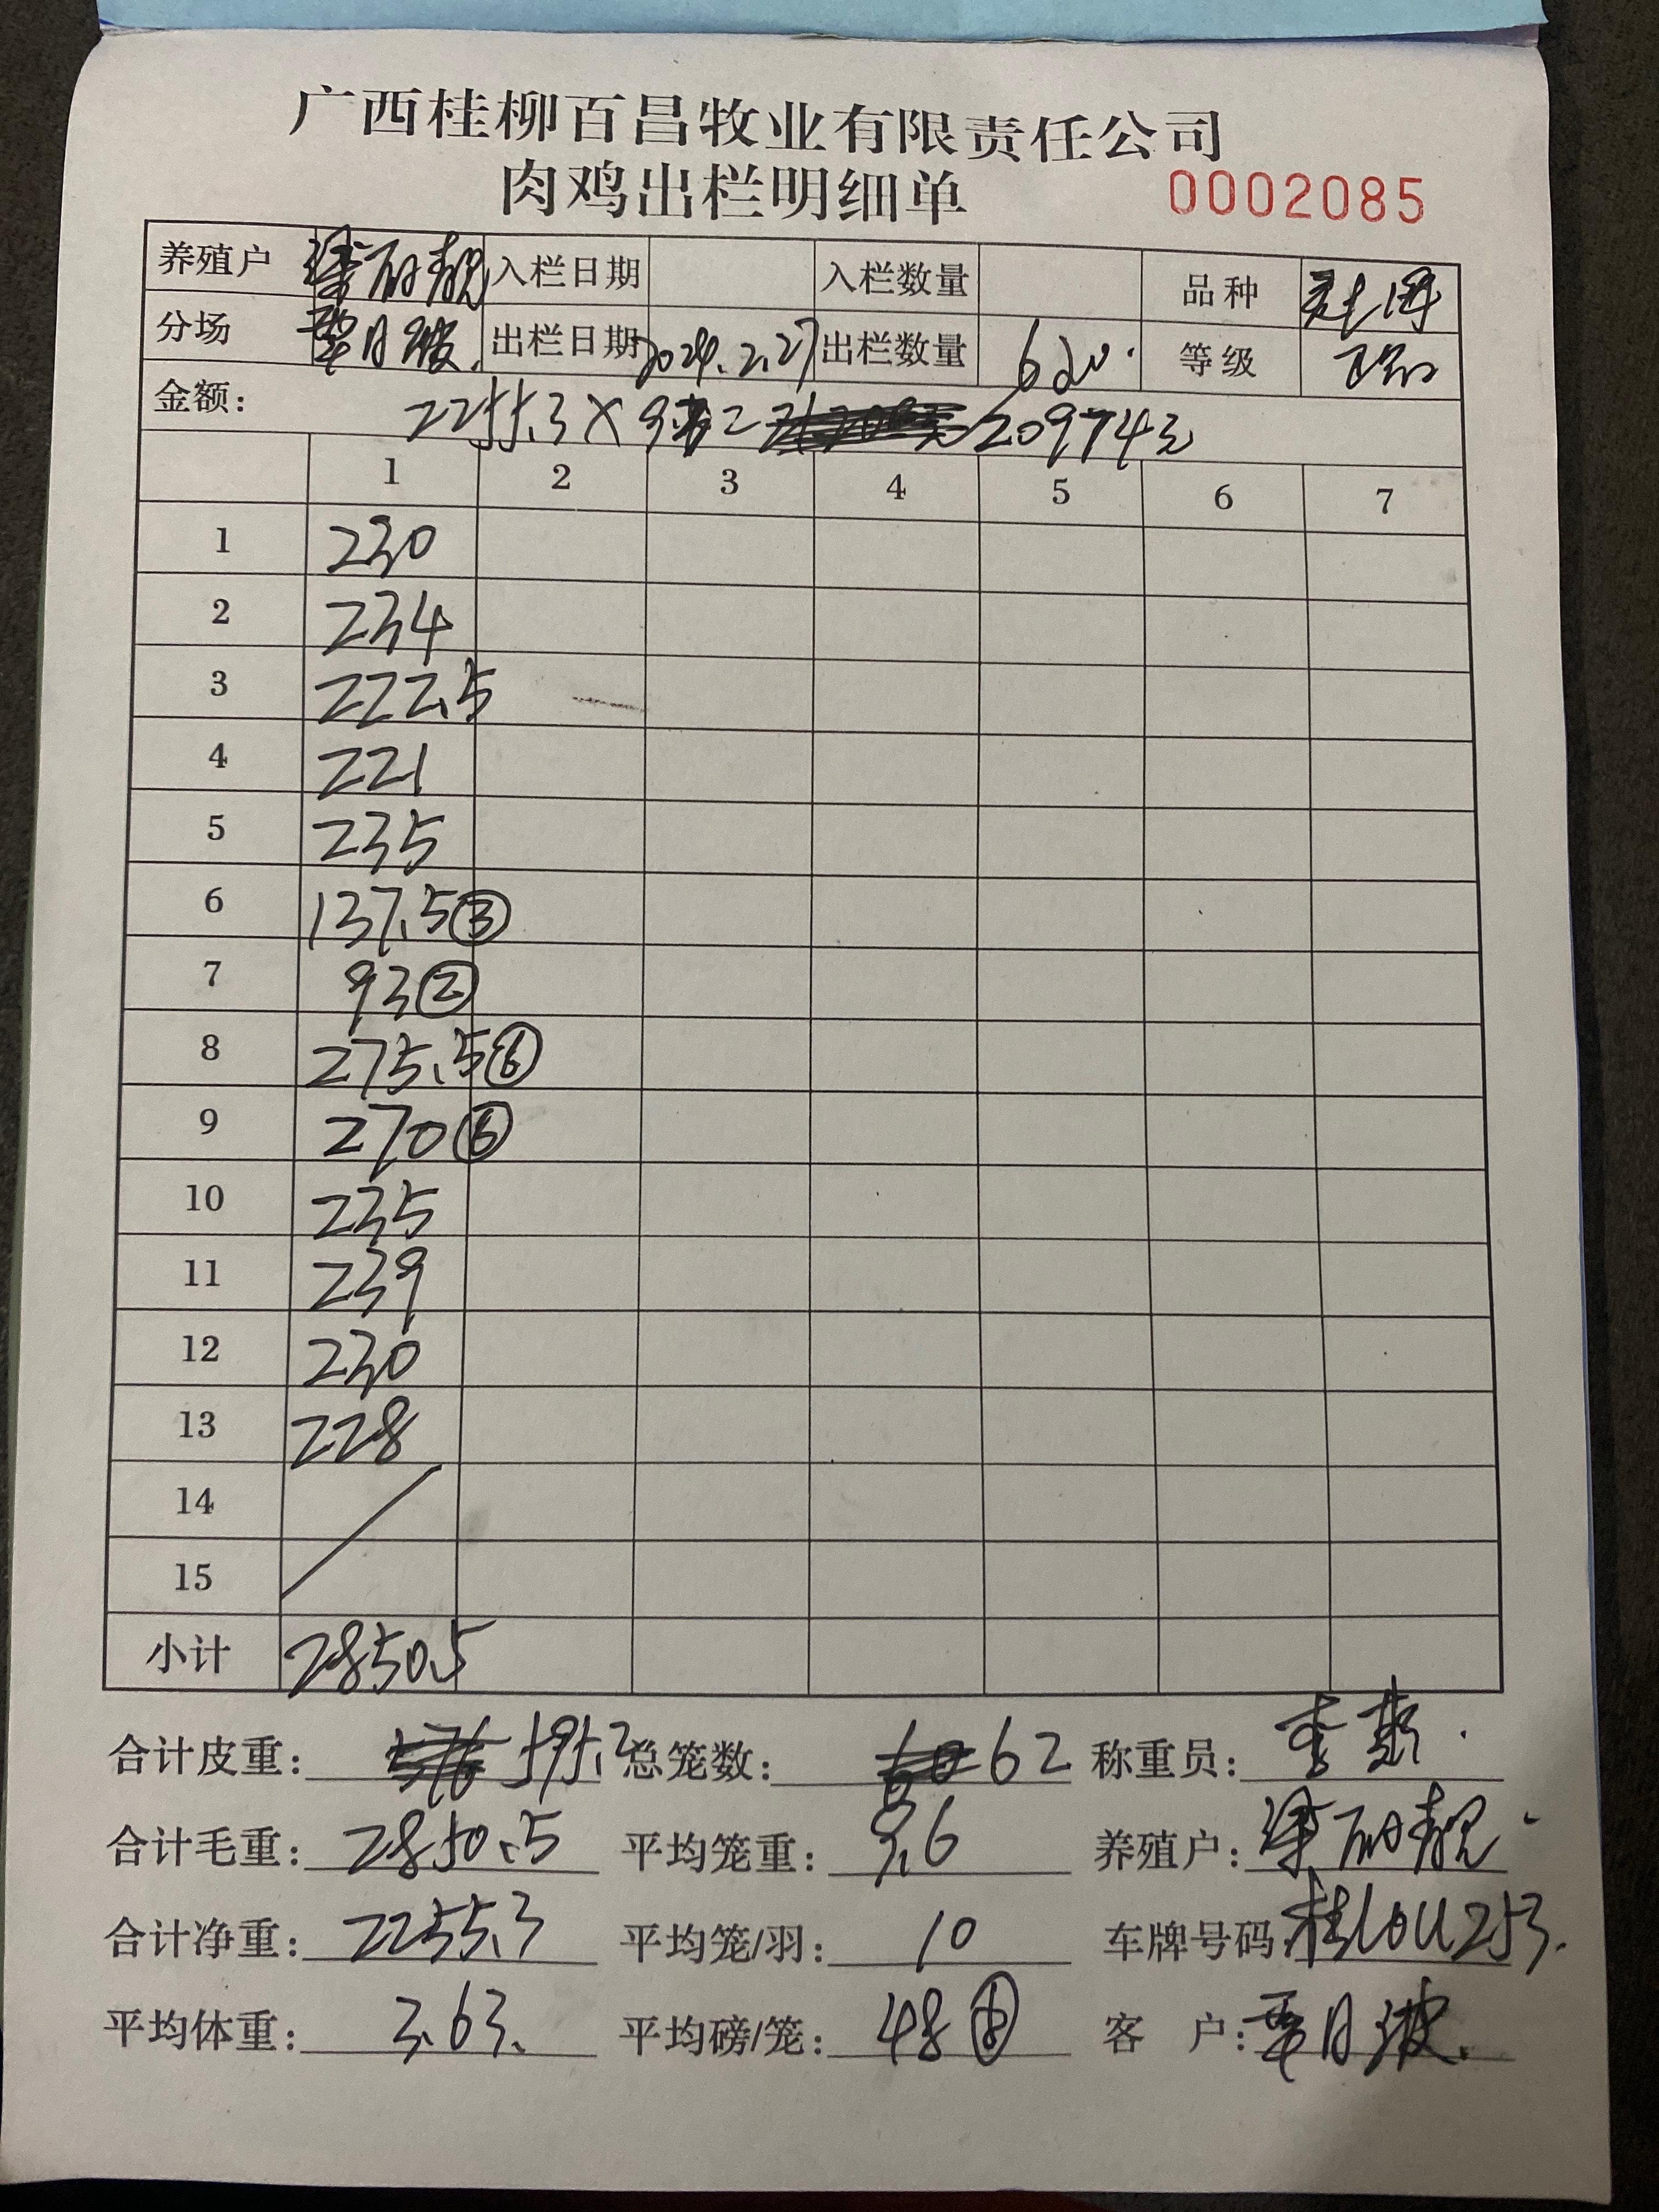 广西桂柳百昌牧业有限责任公司
肉鸡出栏明细单 0002085
养殖户 梁丽靓 入栏日期 入栏数量 品种
分场 覃日波. 出栏日期 2024.2.27 出栏数量 620. 等级 正品
金额: 2255.3×9.3= 20974元
1 2 3 4 5 6 7
1 230
2 234
3 222.5
4 221
5 235
6 137.5③
7 93②
8 275.5⑥
9 270⑥
10 235
11 239
12 230
13 228
14
15
小计 2850.5
合计皮重: 595.2 总笼数: 62 称重员:
合计毛重: 2850.5 平均笼重: 9.6 养殖户: 梁丽靓
合计净重: 2255.3 平均笼/羽: 10 车牌号码: 桂L0U253.
平均体重: 3.63. 平均磅/笼: 48 客 户: 覃日波.